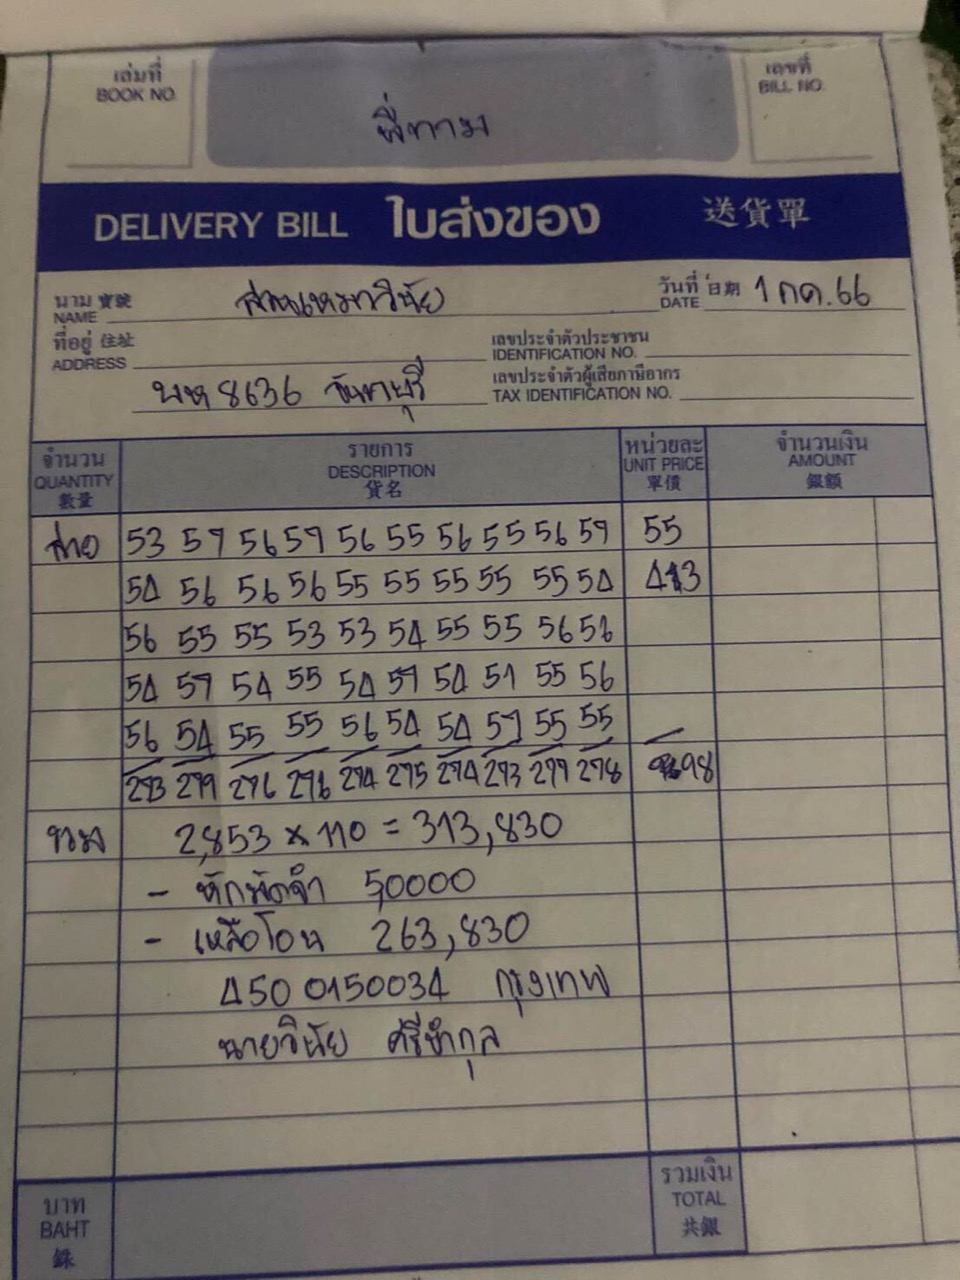 เล่มที่
BOOK NO.
เลขที่
BILL NO.
พี่ทาม
DELIVERY BILL ใบส่งของ 送貨單
นาม 寶號
NAME
วันที่ 日期
DATE
1 กค. 66
ที่อยู่ 住址
ADDRESS
เลขประจำตัวประชาชน
IDENTIFICATION NO.
เลขประจำตัวผู้เสียภาษีอากร
TAX IDENTIFICATION NO.
8636 จันทบุรี
จำนวน รายการ หน่วยละ จำนวนเงิน
QUANTITY DESCRIPTION UNIT PRICE AMOUNT
數量 貨名 單價 銀額
53 57 56 57 56 55 56 55 56 57 55
54 56 56 56 55 55 55 55 55 54 43
56 55 55 53 53 54 55 55 56 56
54 57 54 55 54 57 54 51 55 56
56 54 55 55 56 54 54 57 55 55
273 279 276 276 274 275 274 273 277 278 98
รวม 2,853 × 110 = 313,830
- หักมัดจำ 50000
- เหลือโอน 263,830
450 0150034 กรุงเทพ
นายวินัย ศรีขำกุล
บาท
BAHT
銖
รวมเงิน
TOTAL
共銀